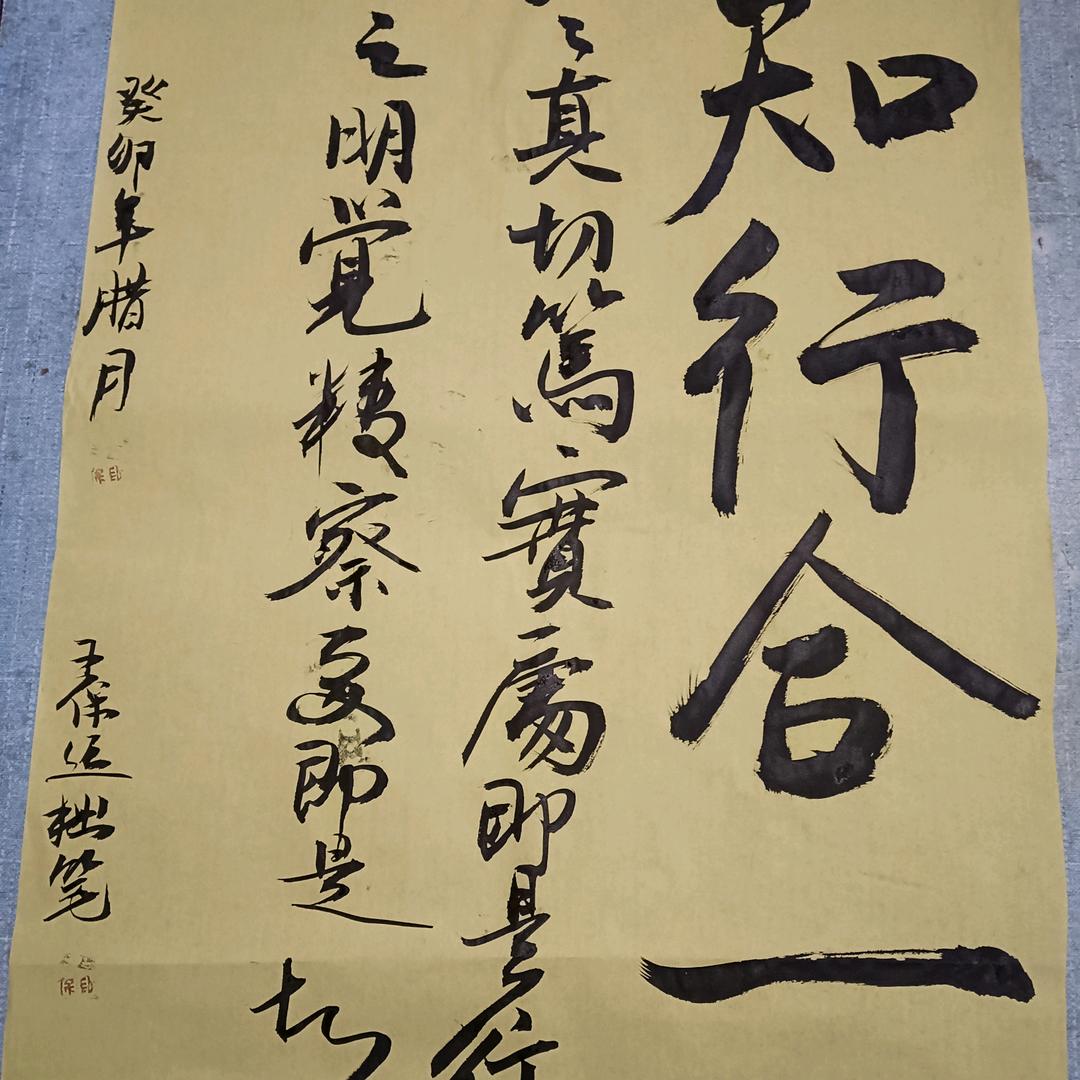 知行合一
之真切篤實處即是行
之明覚精察處即是知
癸卯年腊月
王保运拙笔